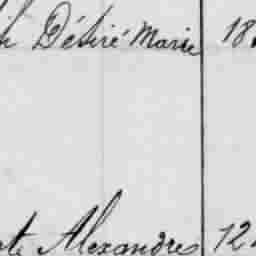 Désiré Marie 18
Alexandre 12